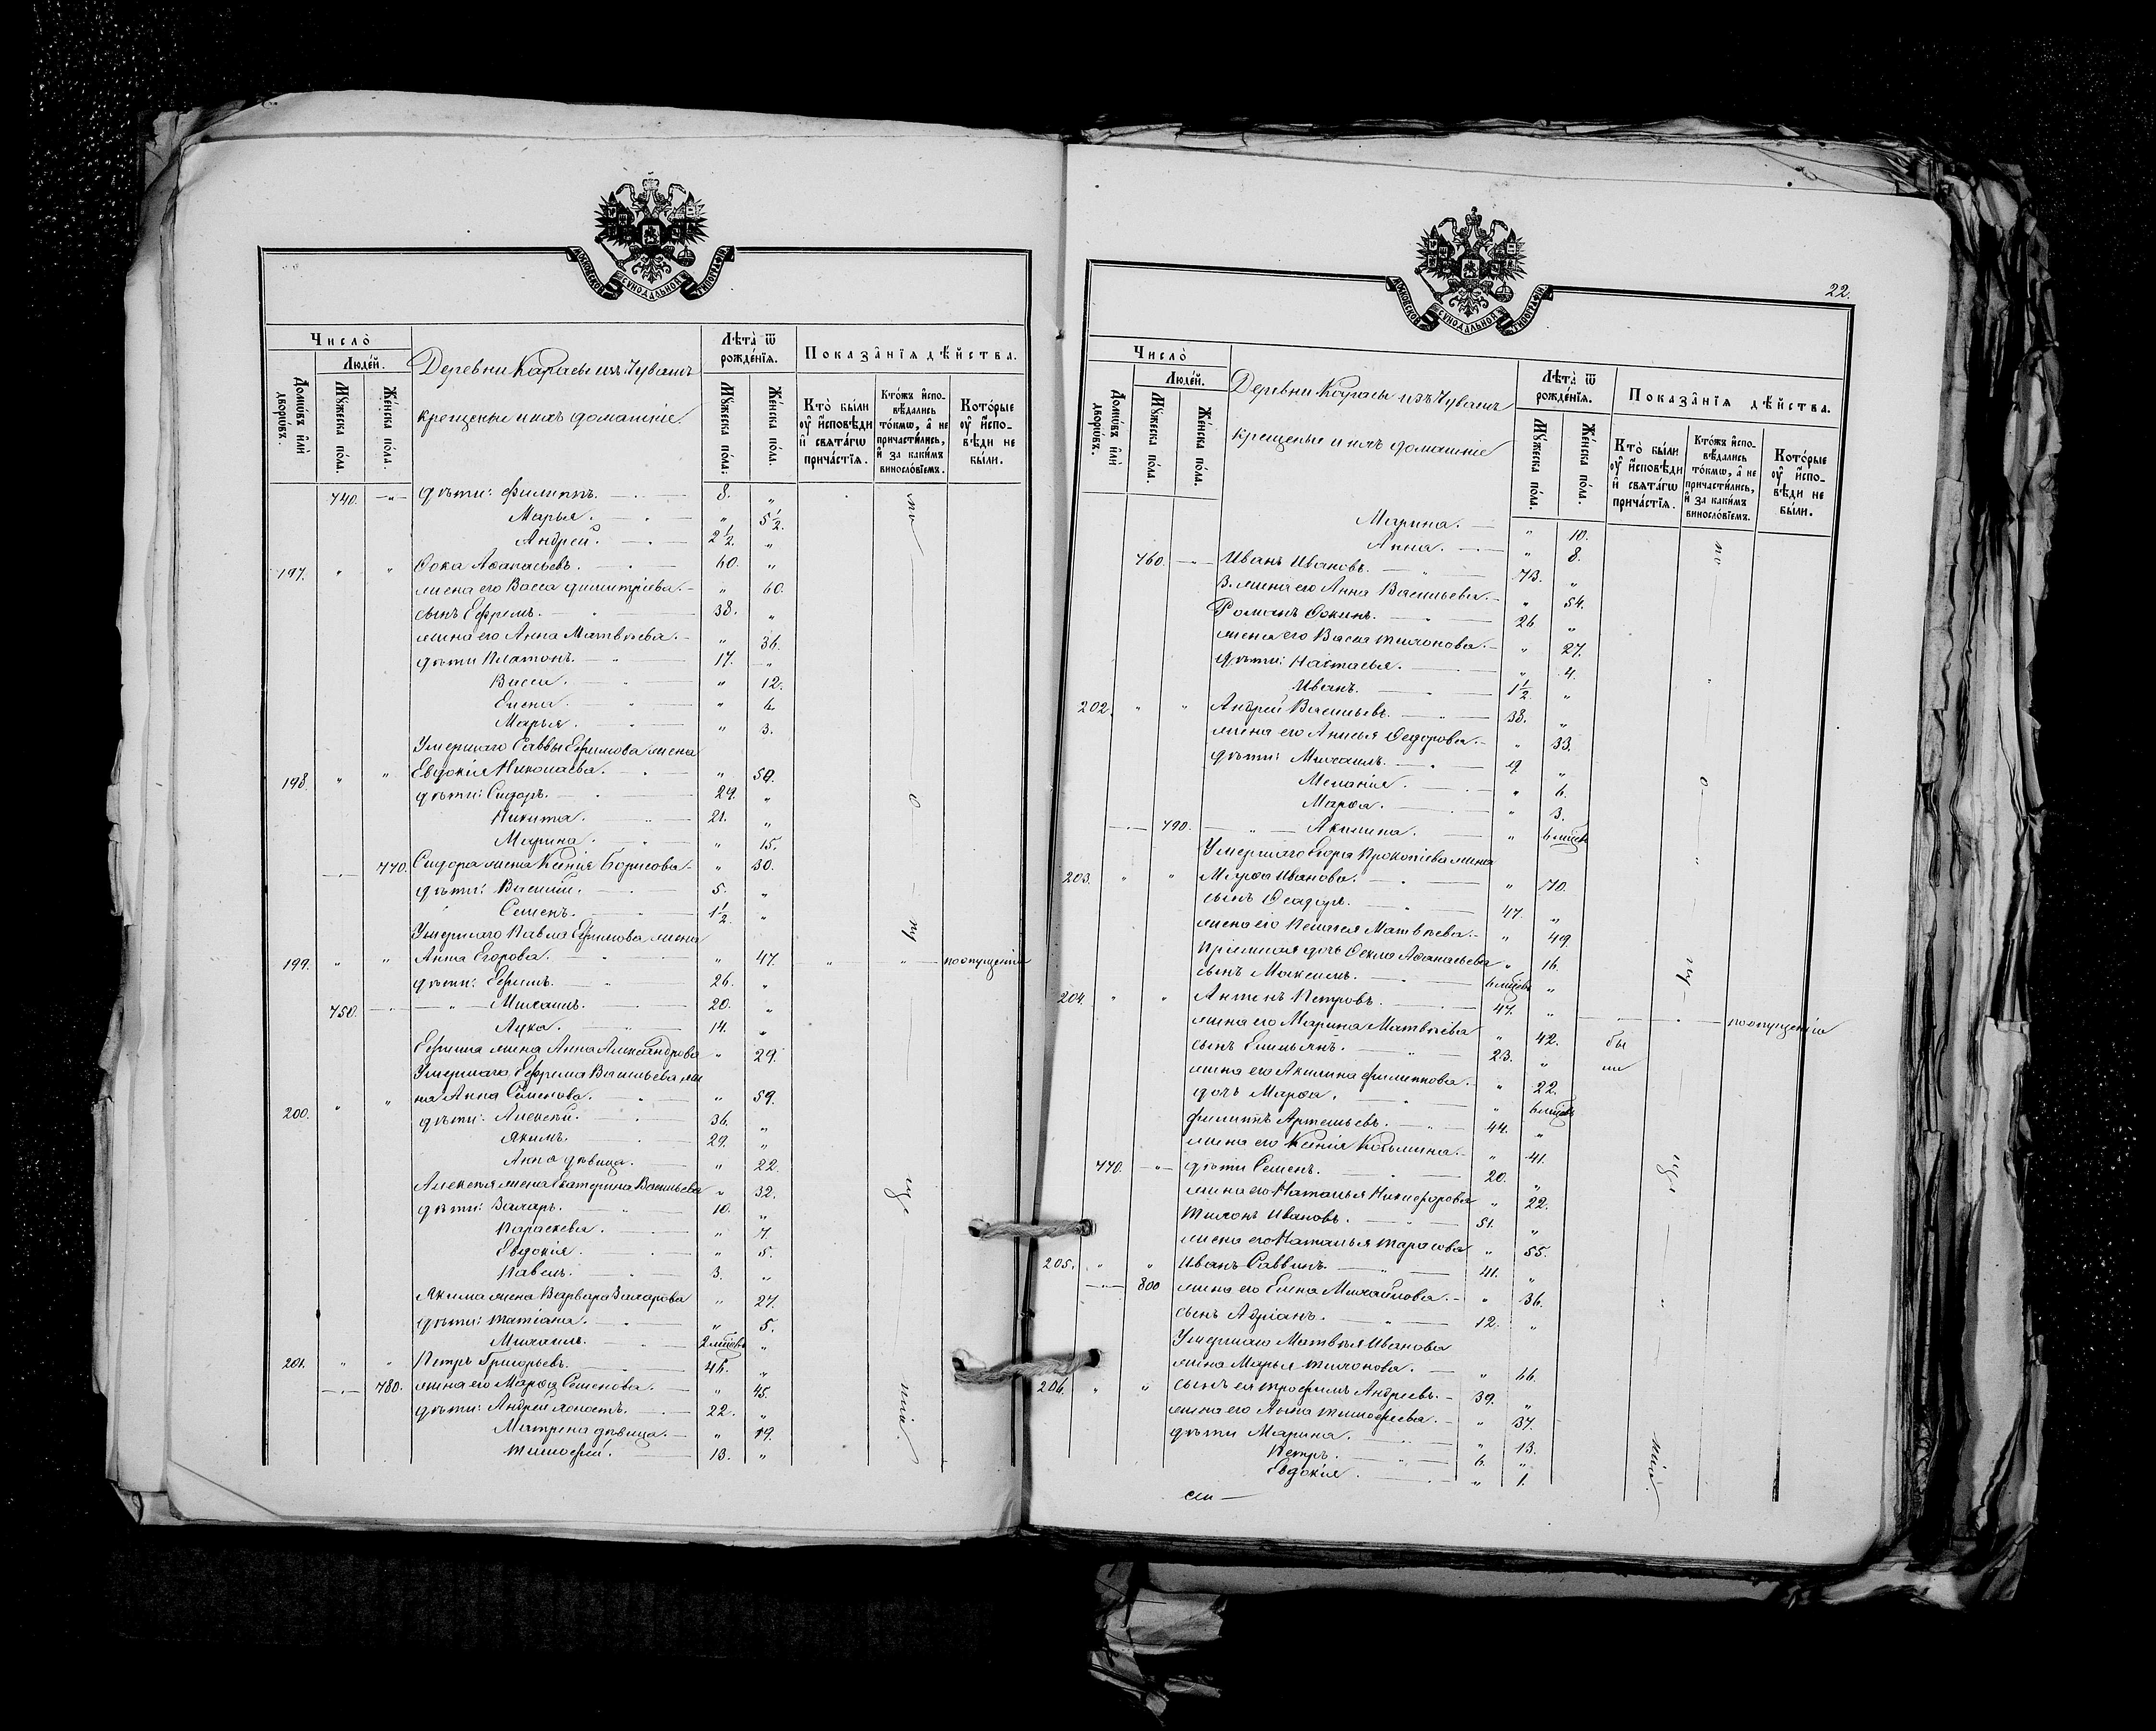 МОСКОВСКОЙ СѴНОДАЛЬНОЙ ТИПОГРАФІИ
Число̀
Людéй.
Домѡ́въ и҆лѝ дворѡ́въ.
Мꙋ́жеска по́ла.
Же́нска по́ла.
Деревни Карасы изъ Чувашъ
крещеные и ихъ домашніе.
Лѣта̀ ѿ рожде́нїѧ.
Мꙋ́жеска по́ла.
Же́нска по́ла.
Показа̑нїѧ дѣ́йства.
Кто̀ бы́ли оу҆ и҆сповѣди и҆ свѧта́гѡ прича́стїѧ.
Кто́жъ и҆спо-
вѣдались
то́кмѡ, а҆ не
причасти́лись,
и҆ за каки́мъ
винослѡ́вїемъ.
Кото́рые
оу҆ и҆спо-
вѣди не
бы́ли.
740. дѣти: Филиппъ. 8. "
Марья. " 5½.
Андрей. 2½. "
197. " " Ѳока Аѳанасьевъ. 60. "
жена его Васса Димитріева. " 60.
сынъ Ефремъ. 38. "
жена его Анна Матвѣева. " 36.
дѣти Платонъ. 17. "
Васса. " 12.
Елена. " 6.
Марья. " 3.
Умершаго Саввы Ефимова жена
198. " " Евдокія Николаева. " 59.
дѣти: Сидоръ. 29. "
Никита. 21. "
Марина. " 15.
770. Сидора жена Ксенія Борисова. " 30.
дѣти: Василій. 5. "
Семенъ. 1½. "
Умершаго Павла Ефимова жена
199. " " Анна Егорова. " 47. " " по опущенію
дѣти: Ефимъ. 26. "
750. Михаилъ. 20. "
Лука. 14. "
Ефима жена Анна Александрова " 29.
Умершаго Ефрема Васильева же
200. " " на Анна Семенова. " 59.
дѣти: Алексѣй. 36. "
Якимъ. 29. "
Анна дѣвица. " 22.
Алексѣя жена Екатерина Васильева " 32.
дѣти: Захаръ. 10. "
Параскева. " 7.
Евдокія. " 5.
Павелъ. 3. "
Якима жена Варвара Захарова " 27.
дѣти: Татіана. " 5.
Михаилъ. 2 мѣсев "
201. " " Петръ Григорьевъ. 46. "
780. жена его Марѳа Семенова. " 45.
дѣти: Андрей холостъ. 22. "
Матрена дѣвица. " 19.
Тимофей. 13. "
22.
МОСКОВСКОЙ СѴНОДАЛЬНОЙ ТИПОГРАФІИ
Число̀
Людéй.
Домѡ́въ и҆лѝ дворѡ́въ.
Мꙋ́жеска по́ла.
Же́нска по́ла.
Деревни Карасы изъ Чувашъ
крещеные и ихъ домашніе
Лѣта̀ ѿ рожде́нїѧ.
Мꙋ́жеска по́ла.
Же́нска по́ла.
Показа̑нїѧ дѣ́йства.
Кто̀ бы́ли оу҆ и҆сповѣди и҆ свѧта́гѡ прича́стїѧ.
Кто́жъ и҆спо-
вѣдались
то́кмѡ, а҆ не
причасти́лись,
и҆ за каки́мъ
винослѡ́вїемъ.
Кото́рые
оу҆ и҆спо-
вѣди не
бы́ли.
Марина. " 10.
Анна. " 8.
760. Иванъ Ивановъ. 73. "
2. жена его Анна Васильева. " 54.
Романъ Ѳокинъ. 26 "
жена его Васса Тихонова. " 27.
дѣти: Настасья. " 4.
Иванъ. 1½. "
202. " " Андрей Васильевъ. 38. "
жена его Анисья Ѳедорова. " 33.
дѣти: Михаилъ. 9. "
Меланія. " 6.
Марѳа. " 3.
790. Акилина. " 6 мѣсев
203. " " Марѳа Иванова. " 70.
сынъ Ѳеодоръ. 47. "
жена его Пелагея Матвѣева. " 49.
Пріемная дочь Ѳекла Аѳанасьева " 16.
сынъ Максимъ. 6 мѣсев "
204. " " Антонъ Петровъ. 47. " по опущенію
жена его Марина Матвѣева " 42. бы
сынъ Емельянъ. 23. " ли
жена его Акилина Филиппова. " 22.
дочь Марѳа. " 6 мѣсев
Филиппъ Артемьевъ. 44. "
жена его Ксенія Козьмина. " 41.
770. дѣти Семенъ. 20. "
жена его Наталья Никифорова " 22.
Тихонъ Ивановъ. 51. "
жена его Наталья Тарасова " 55.
205. " " Иванъ Саввинъ. 41. "
800 жена его Елена Михайлова. " 36.
сынъ Адріанъ. 12. "
Умершаго Матвѣя Иванова
жена Марья Тихонова. " 66.
206. " " сынъ ея Трофимъ Андреевъ. 39. "
жена его Анна Тимофеева. " 37.
дѣти Марина. " 13.
Петръ. 6. "
Евдокія. " 1.